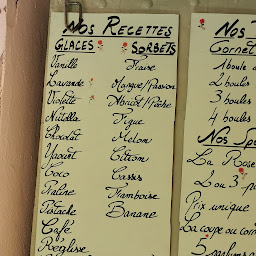 Nos Recettes
Glaces
Sorbets
Vanille
Lavande
Violette
Nutella
Chocolat
Yaourt
Coco
Praline
Pistache
Café
Réglisse
Fraise
Mangue/Passion
Abricot/Pêche
Figue
Melon
Citron
Cassis
Framboise
Banane
Nos
Cornet
1 boule
2 boules
3 boules
4 boules
Nos Spé
La Rose
2 ou 3
Prix unique
La coupe ou corn
5 parfums